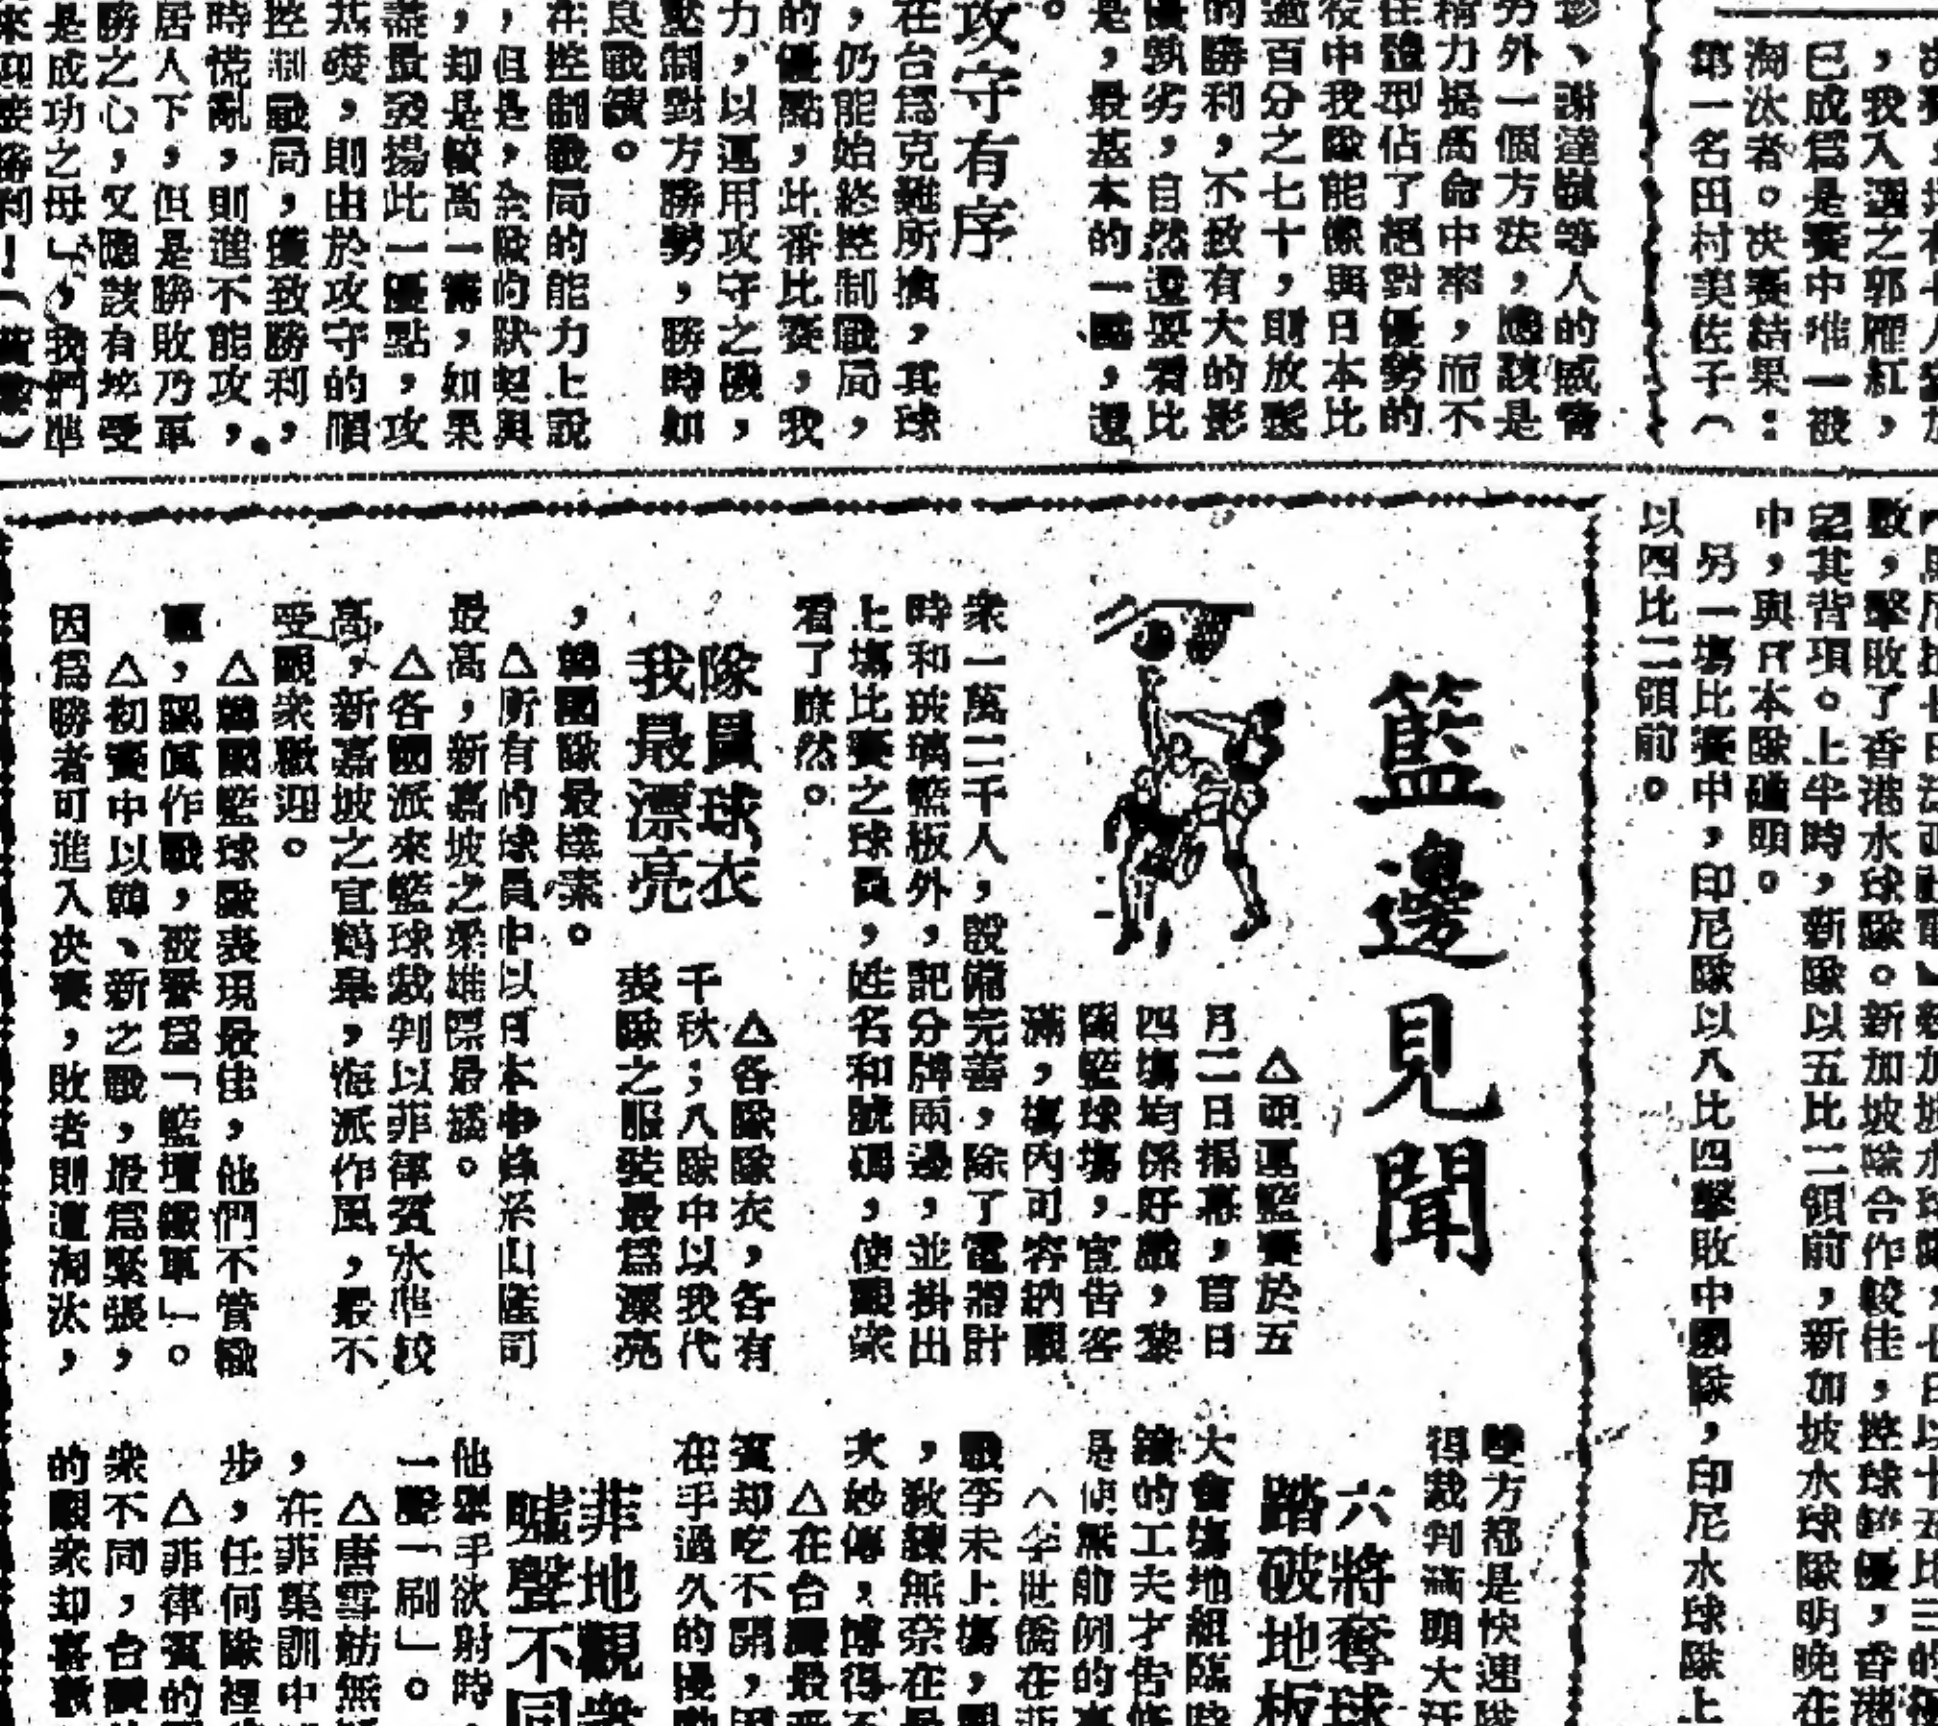 決賽
，我入選之郭雁紅，
已成爲是賽中唯一被
淘汰者。決賽結果：
第一名田村美佐子（
珍、謝達嶽等人的威脅
另外一個方法，應該是
精力提高命中率，而不
在體型佔了絕對優勢的
役中我隊能像與日本比
過百分之七十，則放鬆
的勝利，不致有大的影
優孰劣，自然還要看比
是，最基本的一點，還
。
攻守有序
在台爲克難所擒，其球
，仍能始終控制戰局，
的優點，此番比賽，我
力，以運用攻守之機，
壓制對方勝勢，勝時如
良戰績。
在控制戰局的能力上說
，但是，全隊的默契與
，却是較高一籌，如果
盡量發揚此一優點，攻
基礎，則由於攻守的順
控制戰局，獲致勝利，
時慌亂，則進不能攻，
居人下，但是勝敗乃軍
勝之心，又應該有接受
是成功之母」，我們準
來迎接勝利！（
敗，擊敗了香港水球隊。新加坡隊合作較佳，控球較優，香港
記其背項。上半時，新隊以五比二領前，新加坡水球隊明晚在
中，與日本隊碰頭。
另一場比賽中，印尼隊以八比四擊敗中國隊，印尼水球隊上
以四比二領前。
籃邊見聞
△亞運籃賽於五
月二日揭幕，首日
四場均係好戲，黎
薩籃球場，宣告客
滿，場內可容納觀
衆一萬二千人，設備完善，除了電器計
時和玻璃籃板外，記分牌兩邊，並掛出
上場比賽之球員，姓名和號碼，使觀衆
看了瞭然。
隊員球衣
我最漂亮
△各隊隊衣，各有
千秋；八隊中以我代
表隊之服裝最爲漂亮
，韓國隊最樸素。
△所有的球員中以日本中鋒糸山隆司
最高，新嘉坡之梁雄標最矮。
△各國派來籃球裁判以菲律賓水準較
高，新嘉坡之宜鶴皐，海派作風，最不
受觀衆歡迎。
△韓國籃球隊表現最佳，他們不管輸
贏，認眞作戰，被譽爲「籃壇鐵軍」。
△初賽中以韓、新之戰，最爲緊張，
因爲勝者可進入決賽，敗者則遭淘汰，
雙方都是快速隊
得裁判滿頭大汗
六將奪球
踏破地板
大會塲地組臨時
鐘的工夫才告修
是使無前例的事
△李世僑在菲
戰李未上場，
，教練無奈在最
次妙傳，博得不
△在台灣最
賓却吃不開，因
在手過久的
菲地觀衆
噓聲不同
他舉手欲射時，
一聲「刷」。
△唐雪舫無
，在菲集訓中
步，任何隊裡
△菲律賓的
衆不同，台灣
的觀衆却喜歡